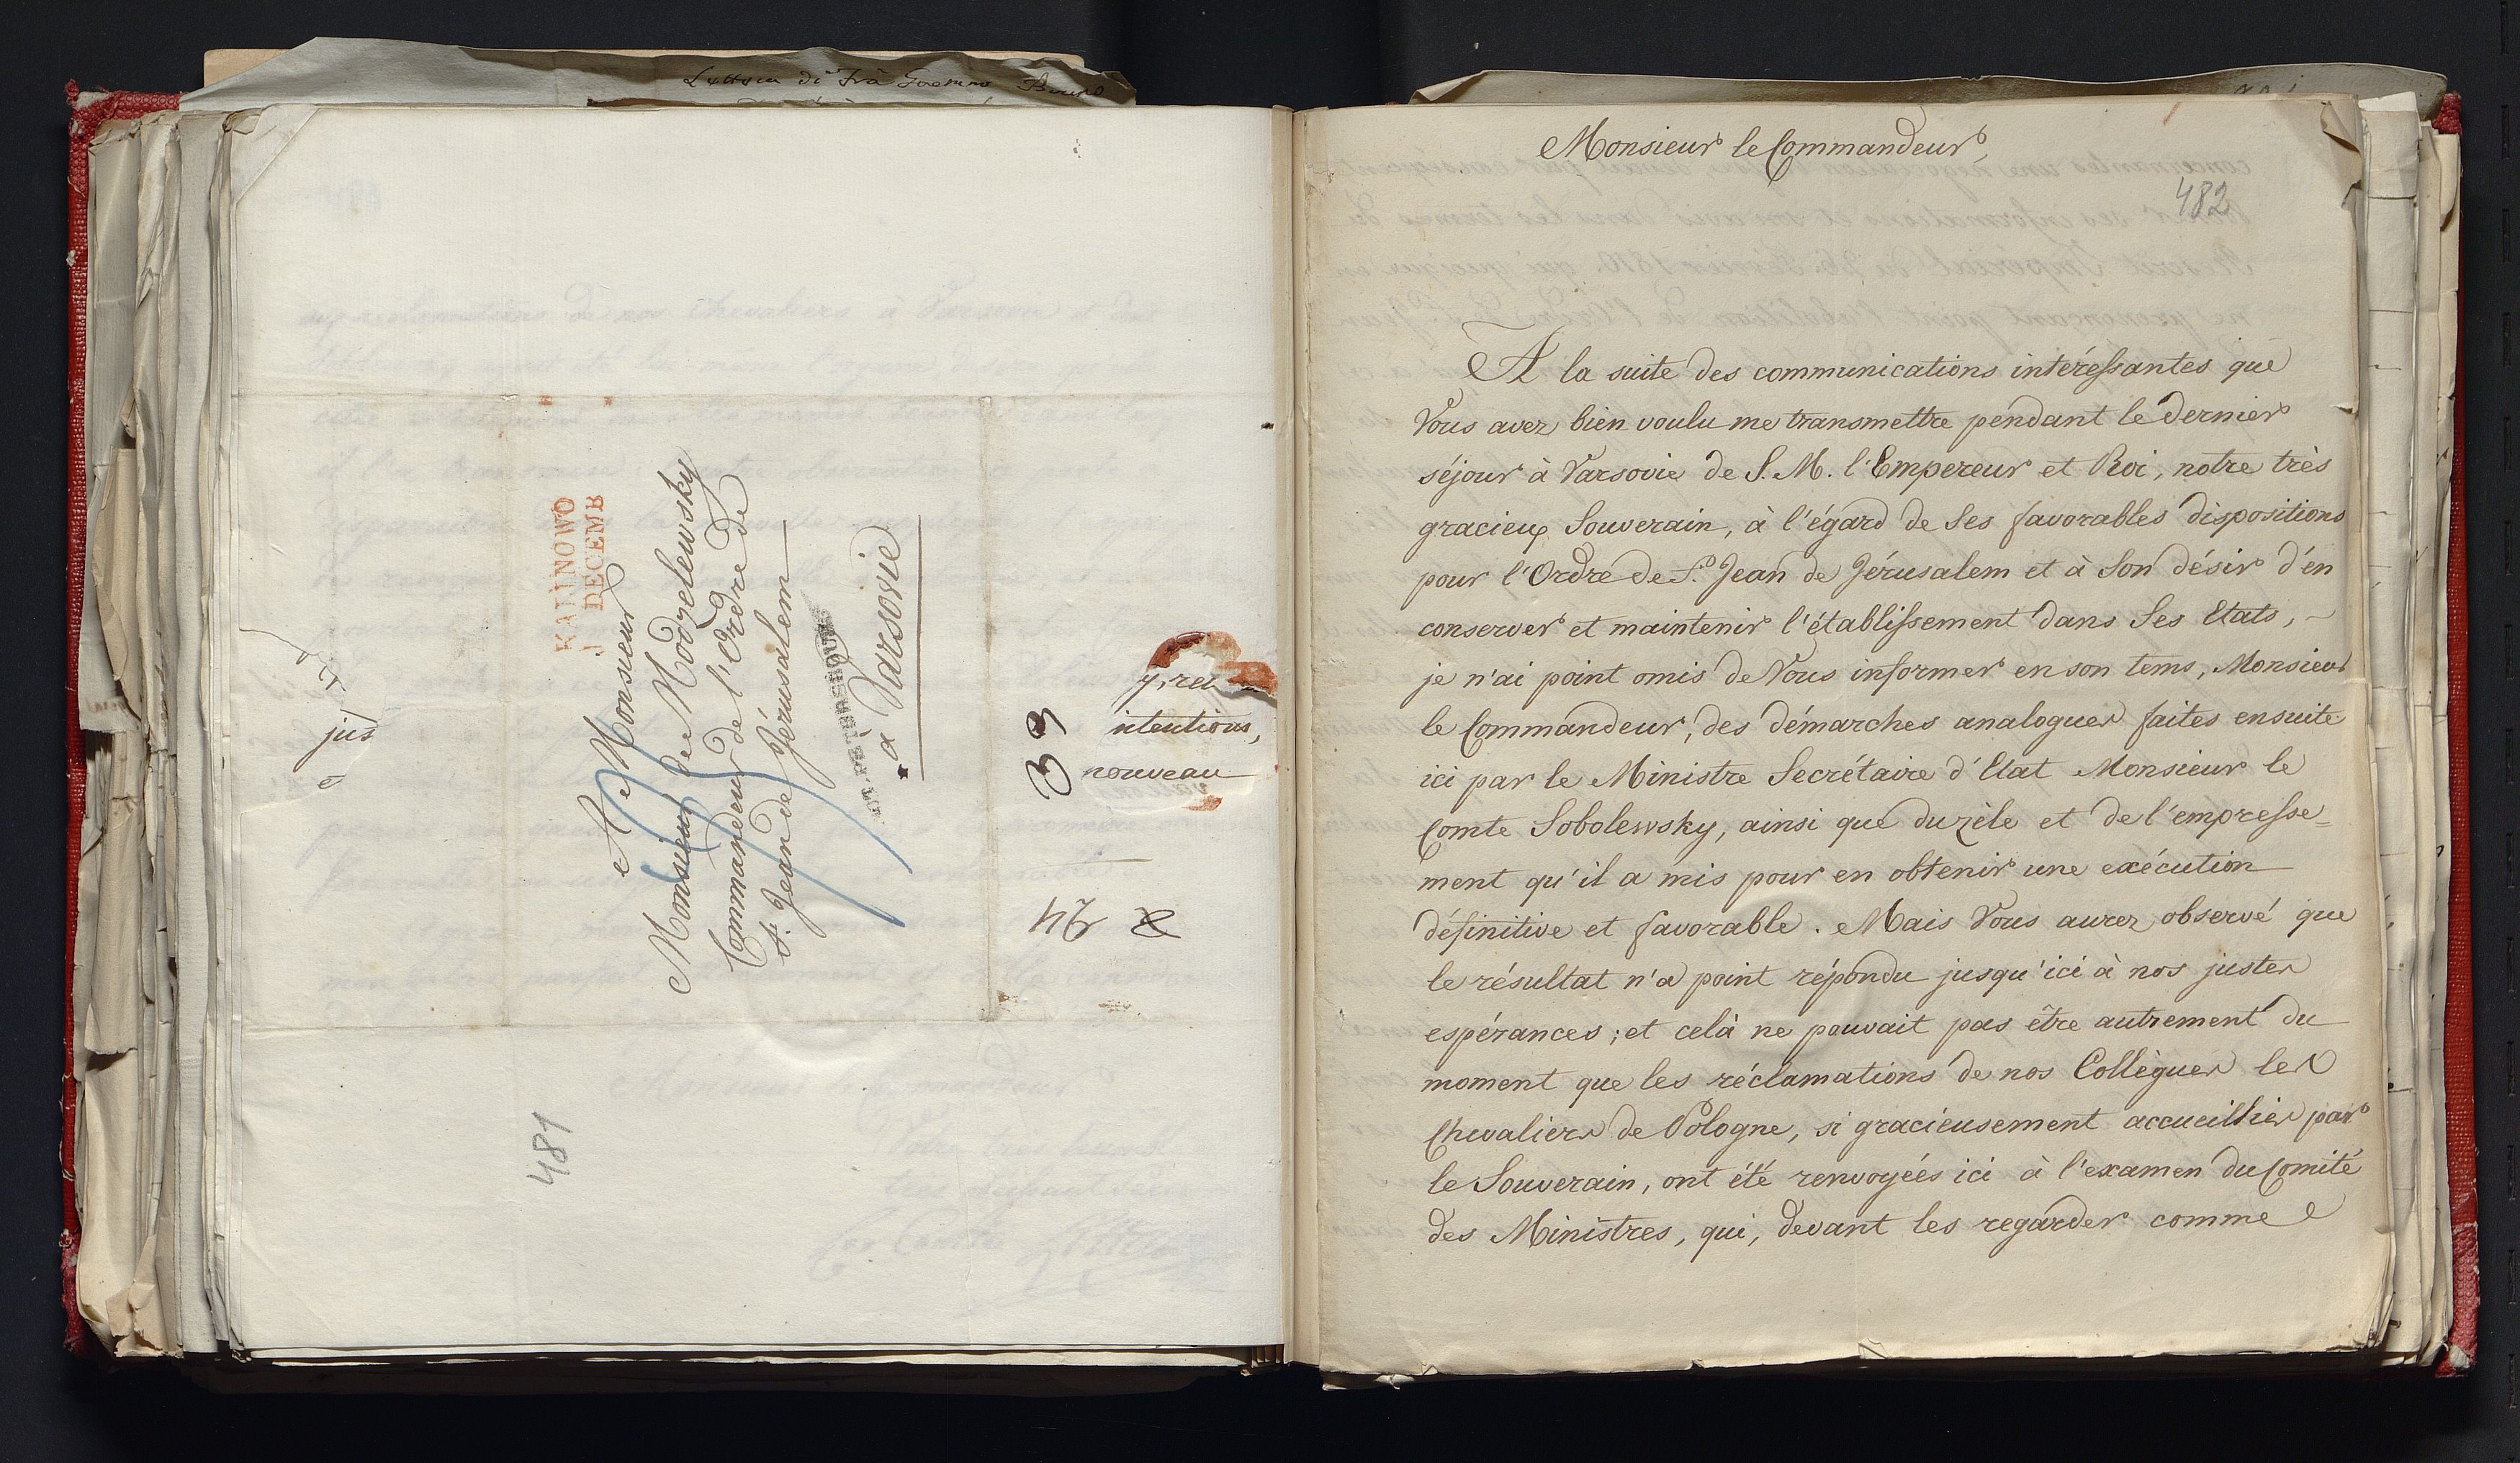 KALINOWO
DECEMB
A Monsieur
Monsieur de Modzelewsky
Commandeur de l'Ordre de
St. Jean de Jérusalem
ST. PETERSBOURG
à Varsovie
33
intentions,
nouveau
jus
481
Monsieur le Commandeur,
482
A la suite des communications intéressantes que
Vous avez bien voulu me transmettre pendant le dernier
séjour à Varsovie de S. M. l'Empereur et Roi, notre très
gracieux Souverain, à l'égard de Ses favorables dispositions
pour l'Ordre de St. Jean de Jérusalem et à Son désir d'en
conserver et maintenir l'établissement dans Ses Etats,
je n'ai point omis de Vous informer en son tems, Monsieur
le Commandeur, des démarches analogues faites ensuite
ici par le Ministre Secrétaire d'Etat Monsieur le
Comte Sobolewsky, ainsi que du zèle et de l'empresse=
ment qu'il a mis pour en obtenir une exécution
définitive et favorable. Mais Vous aurez observé que
le résultat n'a point répondu jusqu'ici à nos justes
espérances; et celà ne pouvait pas être autrement du
moment que les réclamations de nos Collègues les
Chevaliers de Pologne, si gracieusement accueillies par
le Souverain, ont été renvoyées ici à l'examen du Comité
des Ministres, qui, devant les regarder comme